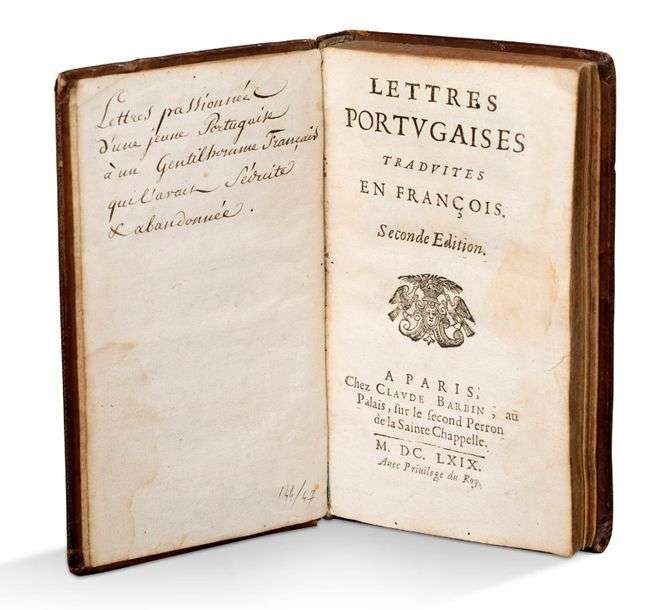 Lettres passionnées
d'une jeune Portugaise
à un Gentilhomme Français
qui l'avait Séduite
& abandonnée.
144/47
LETTRES
PORTVGAISES
TRADVITES
EN FRANÇOIS.
Seconde Edition.
A PARIS,
Chez CLAVDE BARBIN, au
Palais, sur le second Perron
de la Sainte Chappelle.
M. DC. LXIX.
Auec Priuilege du Roy.